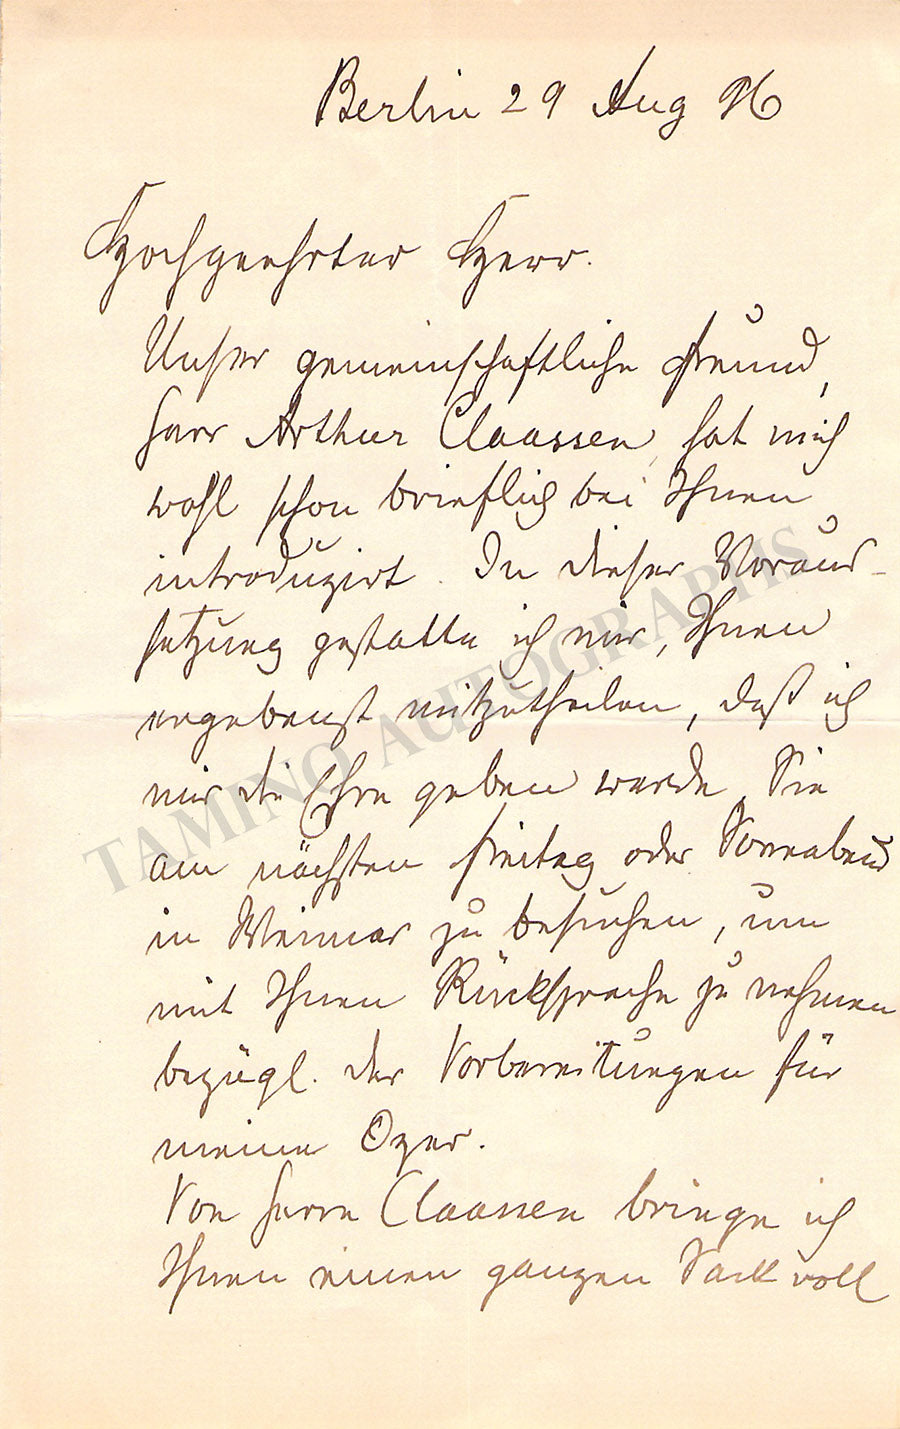 Berlin 29 Aug 96
Hochgeehrter Herr.
Unser gemeinschaftliche Freund,
Herr Arthur Claassen, hat mich
wohl schon brieflich bei Ihnen
introduzirt. In dieser Voraus-
setzung gestatte ich mir, Ihnen
ergebenst mitzutheilen, daß ich
mir die Ehre geben werde, Sie
am nächsten Freitag oder Sonnabend
in Weimar zu besuchen, um
mit Ihnen Rücksprache zu nehmen
bezügl. der Vorbereitungen für
meine Oper.
Von Herrn Claassen bringe ich
Ihnen einen ganzen Sack voll
TAMINO AUTOGRAPHS